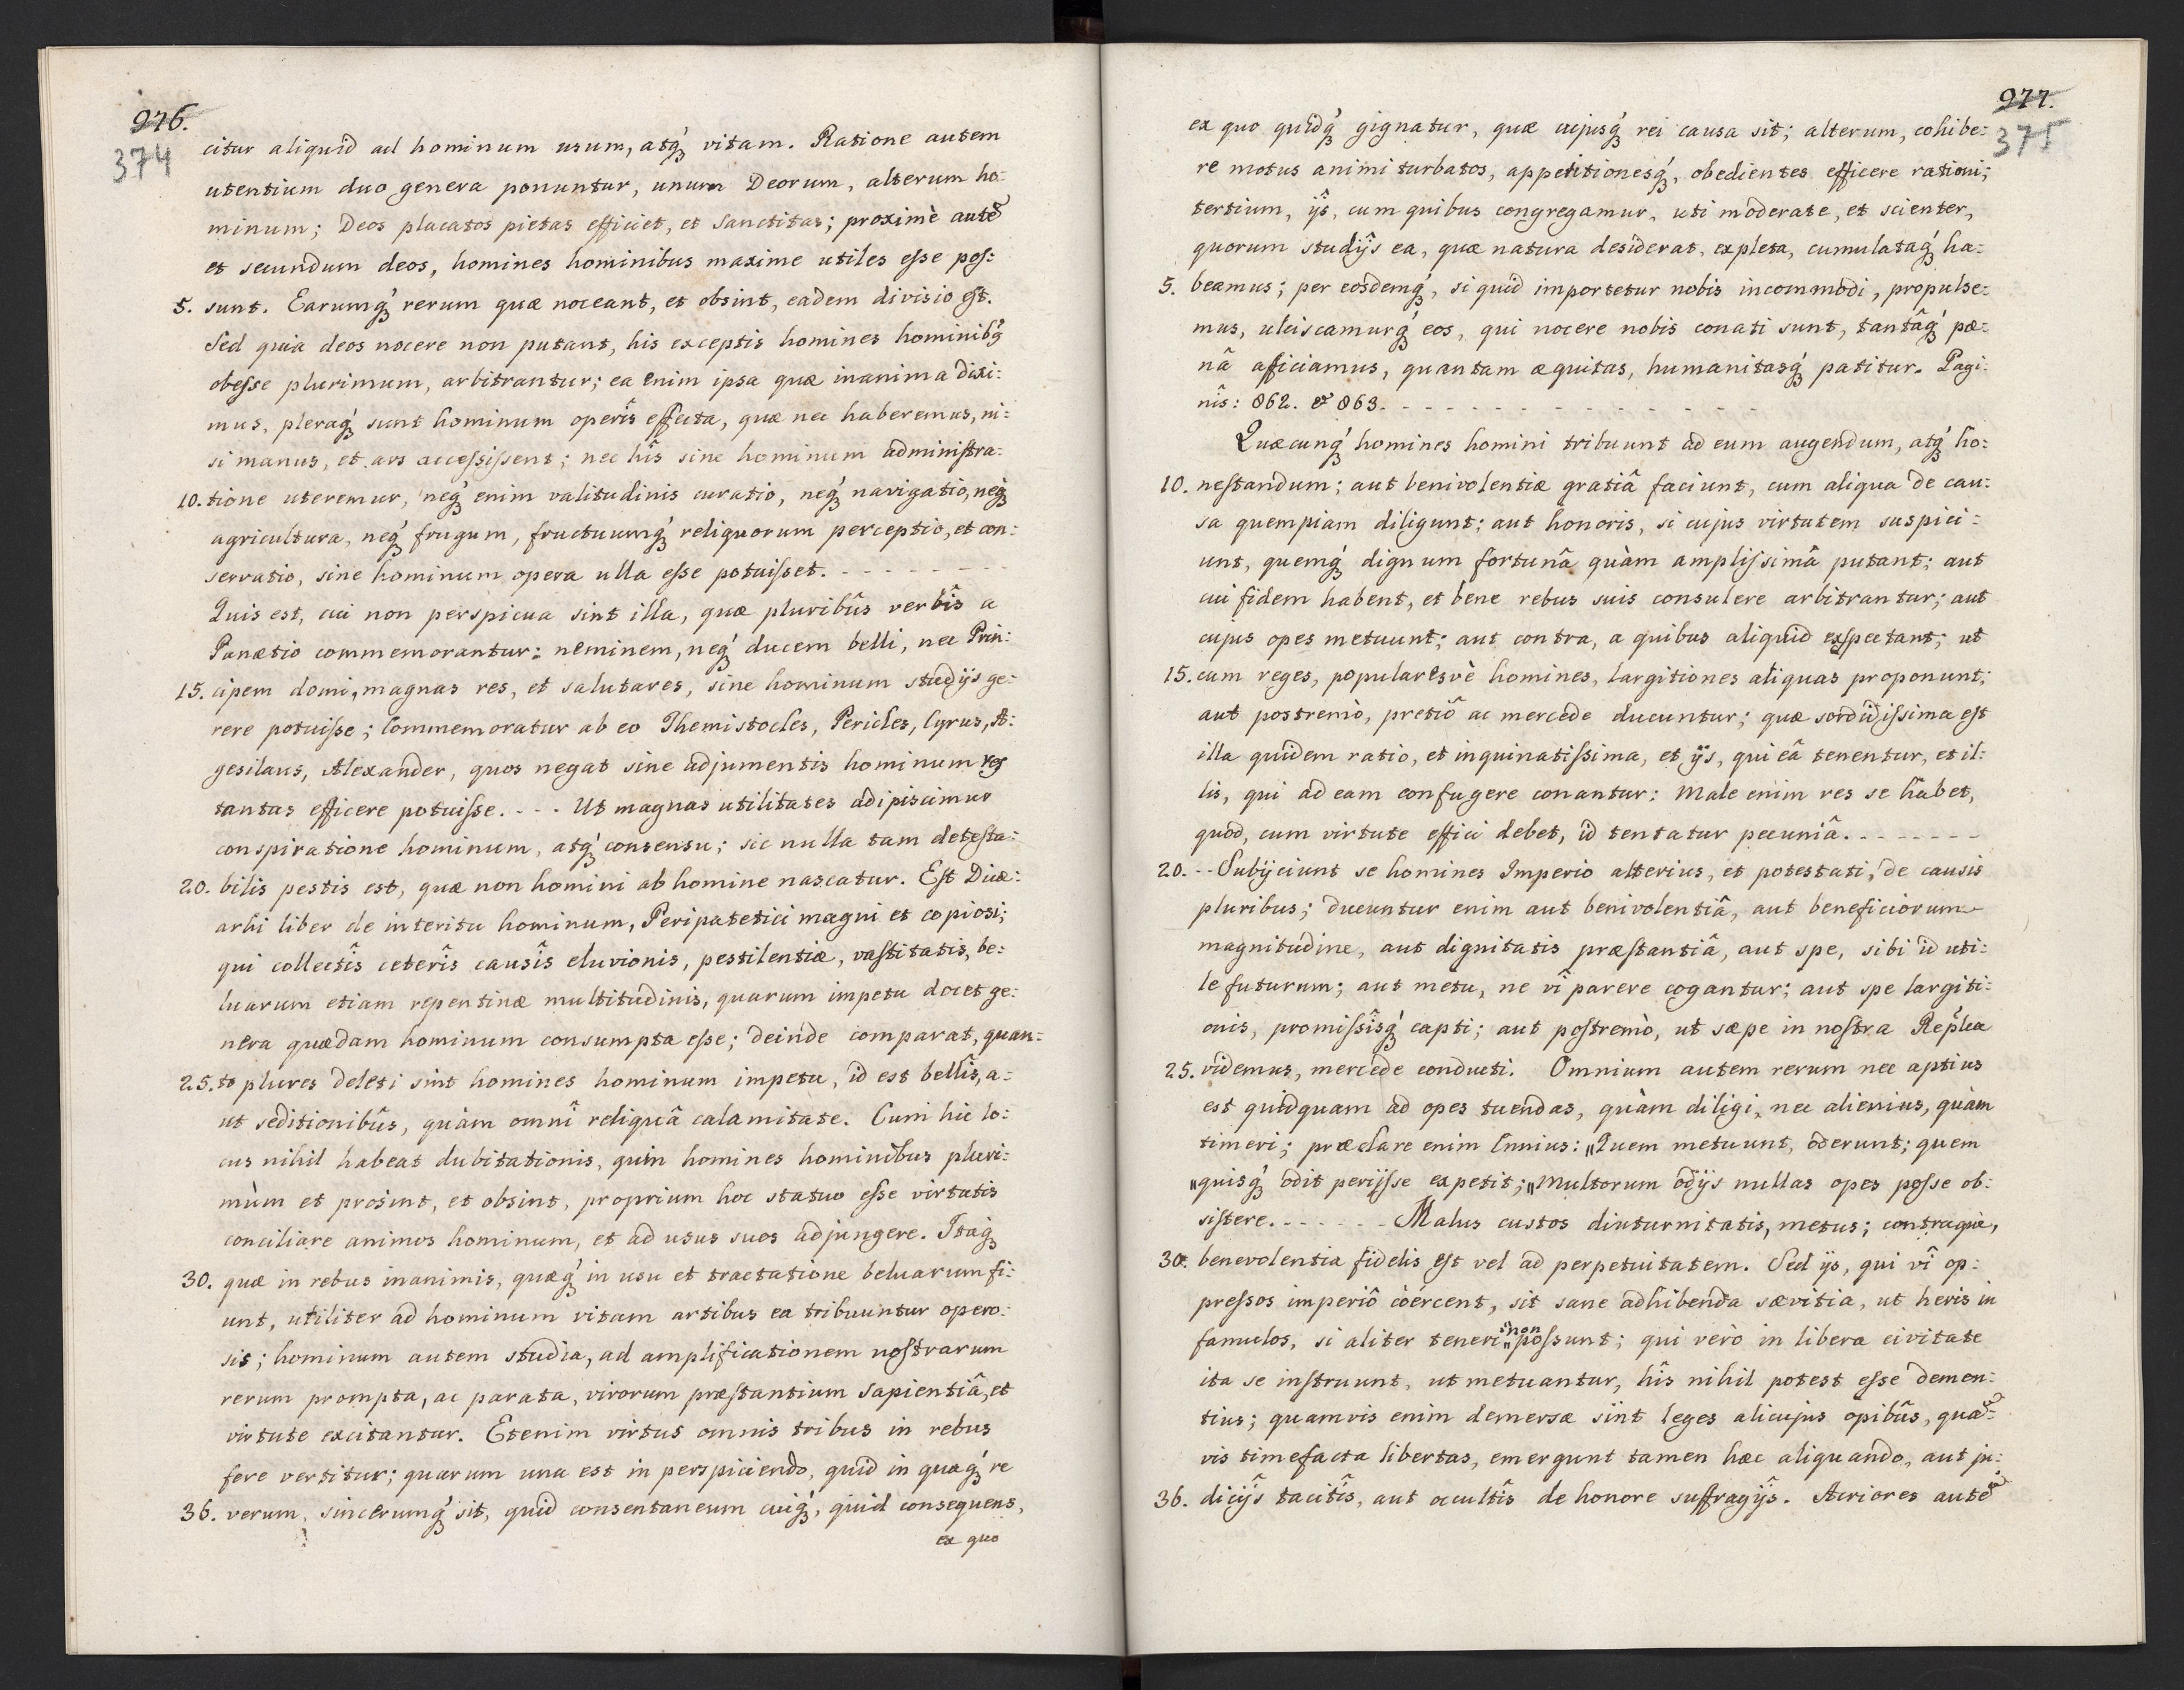 976.
374
citur aliquid ad hominum usum, atq́ꝫ vitam. Ratione autem
utentium duo genera ponuntur, unum Deorum, alterum ho:
minum; Deos placatos pietas efficiet, et Sanctitas; proximè autẽ
et secundum deos, homines hominibus maxime utiles eſse poſ:
5. sunt. Earumq́ꝫ rerum quæ noceant, et obsint, eadem divisio eſt.
Sed quia deos nocere non putant, his exceptis homines hominibꝫ
obeſse plurimum, arbitrantur; ea enim ipsa quæ inanima dixi:
mus, pleraq́ꝫ sunt hominum operîs effecta, quæ nec haberemus, ni:
si manus, et ars acceſsiſsent; nec hîs sine hominum adminiſtra:
10. tione uteremur, neq́ꝫ enim valitudinis curatio, neq́ꝫ navigatio, neqꝫ
agricultura, neq́ꝫ frugum, fructuumq́ꝫ reliquorum perceptio, et con:
servatio, sine hominum opera ulla eſse potuiſset. - - - - - - - -
Quis est, cui non perspicua sint illa, quæ pluribûs verbîs a
Panætio commemorantur: neminem, neq́ꝫ ducem belli, nec Prin:
15. cipem domi, magnas res, et salutares, sine hominum studijs ge:
rere potuiſse; Commemoratur ab eo Themistocles, Pericles, Cyrus, A:
gesilaus, Alexander, quos negat sine adjumentis hominum res
tantas efficere potuiſse. - - - Ut magnas utilitates adipiscimur
conspiratione hominum, atq́ꝫ consensu; sic nulla tam deteſta:
20. bilis pestis est, quæ non homini ab homine nascatur. Eſt Dicæ:
arhi liber de interitu hominum, Peripatetici magni et copiosi;
qui collectîs ceterîs causîs eluvionis, pestilentiæ, vaſtitatis, be:
luarum etiam repentinæ multitudinis, quarum impetu docet ge:
nera quædam hominum consumpta eſse; deinde comparat, quan:
25. to plures deleti sint homines hominum impetu, id est bellîs, a:
ut seditionibûs, quàm omnî reliquâ calamitate. Cum hic lo:
cus nihil habeat dubitationis, quin homines hominibus pluri:
mùm et prosint, et obsint, proprium hoc statuo eſse virtutis
conciliare animos hominum, et ad usus suos adjungere. Itaqꝫ
30. quæ in rebus inanimis, quæq́ꝫ in usu et tractatione beluarum fi:
unt, utiliter ad hominum vitam artibus ea tribuuntur opero:
sis; hominum autem studia, ad amplificationem noſtrarum
rerum prompta, ac parata, virorum præſtantium Sapientiâ, et
virtute excitantur. Etenim virtus omnis tribus in rebus
fere vertitur; quarum una est in perspiciendo, quid in quaq́ꝫ re
36. verum, sincerumq́ꝫ sit, quid consentaneum cuiq́ꝫ, quid consequens,
ex quo
977.
375
ex quo quidq́ꝫ gignatur, quæ cujusq́ꝫ rei causa sit; alterum, cohibe:
re motus animi turbatos, appetitionesq́ꝫ, obedientes efficere rationi;
tertium, ijs, cum quibus congregamur, uti moderate, et scienter,
quorum studijs ea, quæ natura desiderat, expleta, cumulataq́ꝫ ha:
5. beamus; per eosdemq́ꝫ, si quid importetur nobis incommodi, propulse:
mus, ulciscamurq́ꝫ eos, qui nocere nobis conati sunt, tantâq́ꝫ pæ:
nâ afficiamus, quantam æquitas, humanitasq́ꝫ patitur. Pagi:
nis: 862. et 863. - - - - - - - - - - - - - -
Quæcunq́ꝫ homines homini tribuunt ad eum augendum, atq́ꝫ ho:
10. neſtandum; aut benivolentiæ gratiâ faciunt, cum aliqua de cau:
sa quempiam diligunt; aut honoris, si cujus virtutem suspici:
unt, quemq́ꝫ dignum fortunâ quàm ampliſsimâ putant; aut
cui fidem habent, et bene rebus suis consulere arbitrantur; aut
cujus opes metuunt; aut contra, a quibus aliquid exspectant; ut
15. cum reges, popularesvè homines, largitiones aliquas proponunt;
aut postremò, pretiô ac mercede ducuntur; quæ sordidiſsima eſt
illa quidem ratio, et inquinatiſsima, et ijs, qui eâ tenentur, et il:
lis, qui ad eam confugere conantur: Male enim res se habet,
quod, cum virtute effici debet, id tentatur pecuniâ. - - - - - - -
20. - - Subijciunt se homines Imperio alterius, et potestati, de causis
pluribus; ducuntur enim aut benivolentiâ, aut beneficiorum
magnitudine, aut dignitatis præſtantiâ, aut spe, sibi id uti:
le futurum; aut metu, ne vî parere cogantur; aut spe largiti:
onis, promiſsîsq́ꝫ capti; aut poſtremò, ut sæpe in noſtra Repĺca
25. videmus, mercede conducti. Omnium autem rerum nec aptius
est quidquam ad opes tuendas, quàm diligi, nec alienius, quàm
timeri; præclare enim Ennius: „Quem metuunt, oderunt; quem
„quisq́ꝫ odit perijſse expetit; „Multorum odijs nullas opes poſse ob:
siſtere. - - - - - - Malus custos diuturnitatis, metus; contraque,
30. benevolentia fidelis eſt vel ad perpetuitatem. Sed ijs, qui vî op:
preſsos imperiô còercent, sit sane adhibenda sævitia, ut heris in
famulos, si aliter teneri „non poſsunt; qui verò in libera civitate
ita se inſtruunt, ut metuantur, hîs nihil potest eſse demen:
tius; quamvis enim demersæ sint leges alicujus opibûs, quã:
vis timefacta libertas, emergunt tamen hæc aliquando, aut ju:
36. dicijs tacitîs, aut occultîs de honore suffragijs. Acriores autẽ